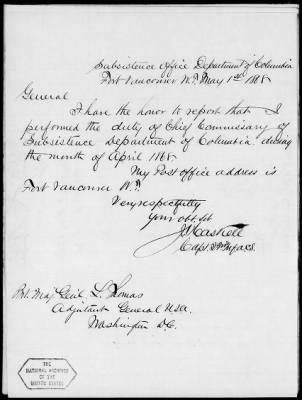 Subsistence Office Department of Columbia
Fort Vancouver W.T. May 1st 1868
General
I have the honor to report that I
performed the duty of Chief Commissary of
Subsistence Department of Columbia, during
the month of April 1868.
My Post office address is
Fort Vancouver W.T.
Very respectfully
Your obt. svt.
Capt.
Bvt. Maj. Genl. L. Thomas
Adjutant General U.S.A.
Washington D.C.
THE
NATIONAL ARCHIVES
OF THE
UNITED STATES